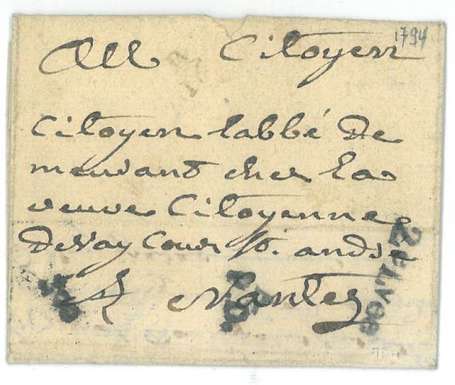 Au Citoyen
1794
Citoyen labbé de
meurant chez la
veuve Citoyenne
devay Cour St. andré
A Nantes